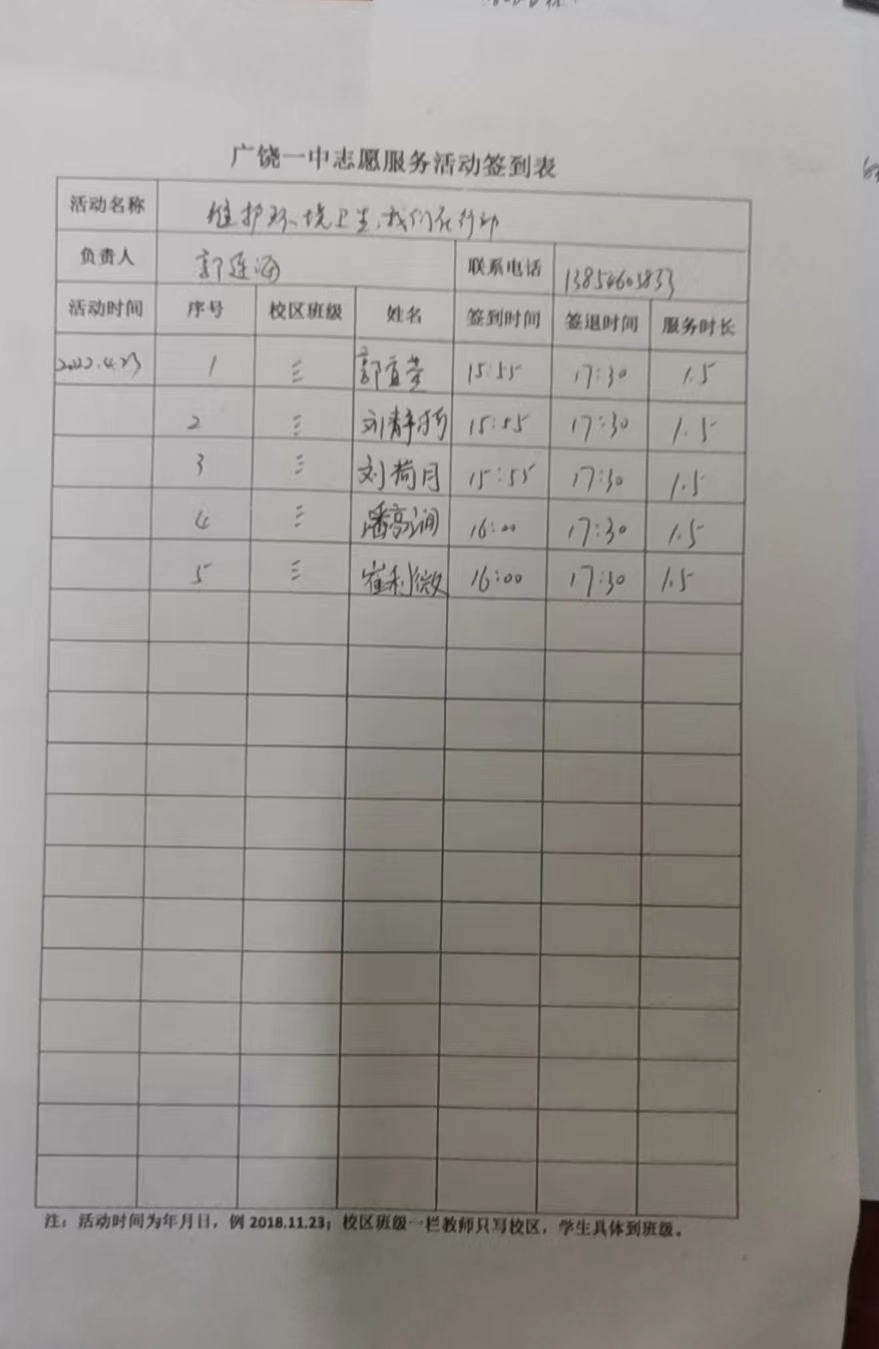 广饶一中志愿服务活动签到表
活动名称 维护环境卫生,我们在行动
负责人 郭连海 联系电话
活动时间 序号 校区班级 姓名 签到时间 签退时间 服务时长
2022.4.23 1 三 郭宜莹 15:55 17:30 1.5
2 三 刘静 15:55 17:30 1.5
3 三 刘荷月 15:55 17:30 1.5
4 三 潘高润 16:00 17:30 1.5
5 三 崔利微 16:00 17:30 1.5
注:活动时间为年月日,例 2018.11.23;校区班级一栏教师只写校区,学生具体到班级。